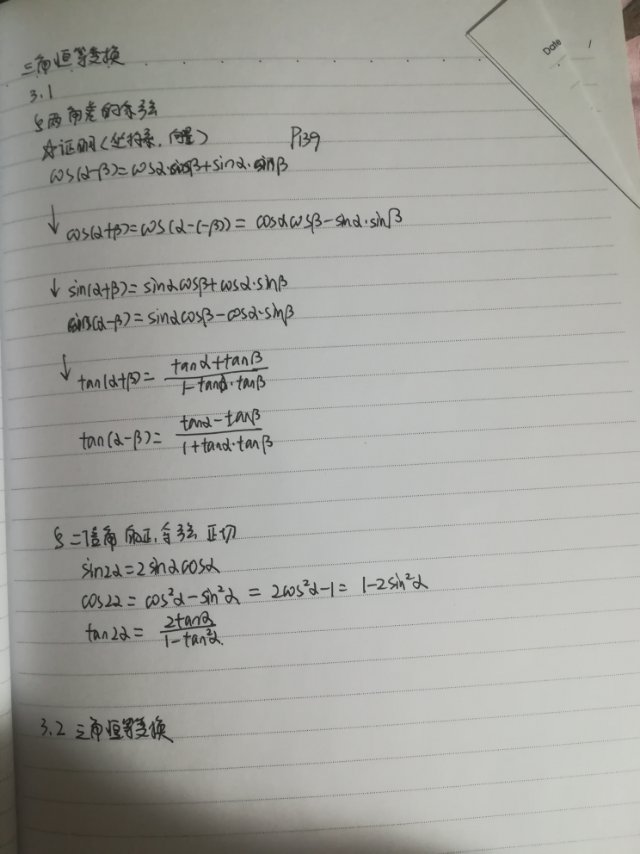 Date /
三角恒等变换
3.1
§两角差的余弦
☆证明(坐标系,向量) P139
cos(α-β)=cosα·cosβ+sinα·sinβ
↓ cos(α+β)=cos(α-(-β))= cosαcosβ-sinα·sinβ
↓ sin(α+β)=sinαcosβ+cosα·sinβ
sin(α-β)=sinαcosβ-cosα·sinβ
↓ tan(α+β)= \frac{tanα+tanβ}{1-tanα·tanβ}
tan(α-β)= \frac{tanα-tanβ}{1+tanα·tanβ}
§二倍角的正,余弦 正切
sin2α=2sinαcosα
cos2α=cos²α-sin²α = 2cos²α-1= 1-2sin²α
tan2α= \frac{2tanα}{1-tan²α}
3.2 三角恒等变换